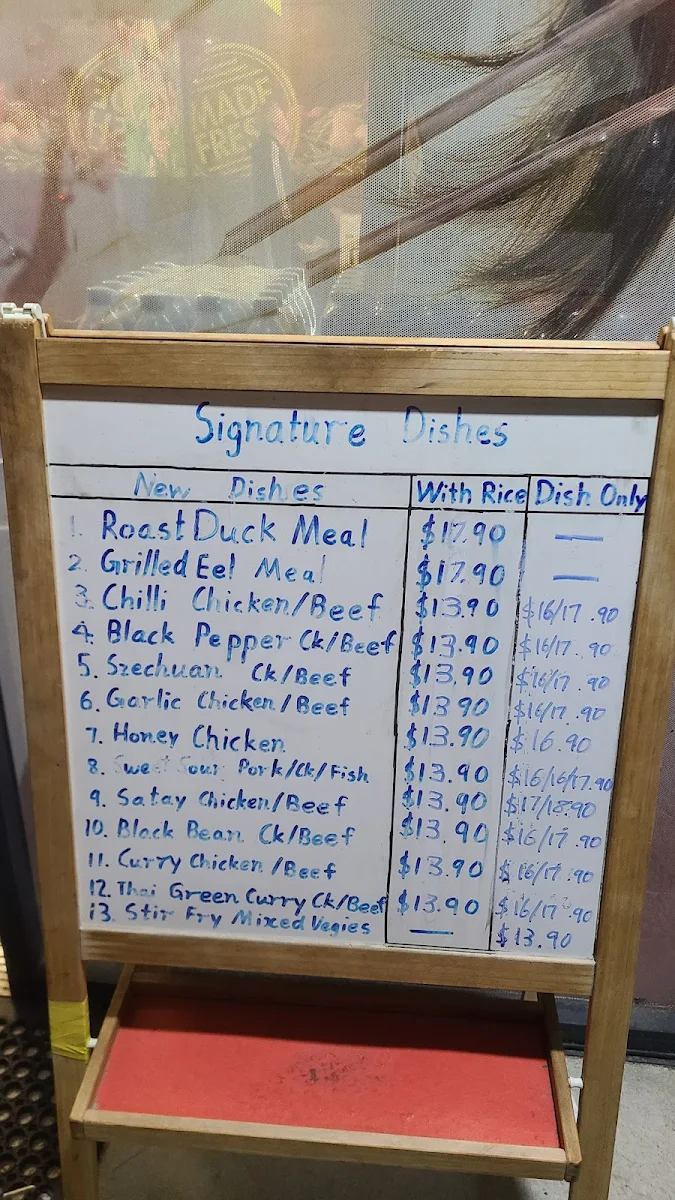 MADE
FRES
Signature Dishes
New Dishes With Rice Dish Only
1. Roast Duck Meal $17.90 —
2. Grilled Eel Meal $17.90 —
3. Chilli Chicken/Beef $13.90 $16/17.90
4. Black Pepper Ck/Beef $13.90 $16/17.90
5. Szechuan Ck/Beef $13.90 $16/17.90
6. Garlic Chicken/Beef $13.90 $16/17.90
7. Honey Chicken $13.90 $16.90
8. Sweet Sour Pork/Ck/Fish $13.90 $16/16/17.90
9. Satay Chicken/Beef $13.90 $17/18.90
10. Black Bean Ck/Beef $13.90 $16/17.90
11. Curry Chicken/Beef $13.90 $16/17.90
12. Thai Green Curry Ck/Beef $13.90 $16/17.90
13. Stir Fry Mixed Vegies — $13.90